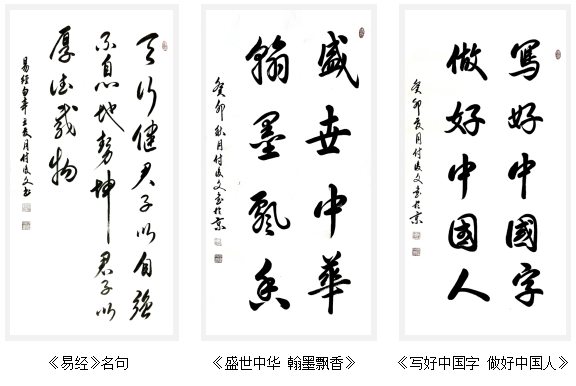 天行健君子以自強
不息地勢坤君子以
厚德載物
易经句辛丑夏月付文书
《易经》名句
盛世中華
翰墨飄香
癸卯秋月付文书於京
《盛世中华 翰墨飘香》
寫好中國字
做好中國人
癸卯夏月付文书於京
《写好中国字 做好中国人》